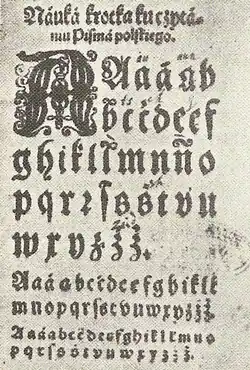 Náuká krotka ku czytá-
niu Pismá polskiego.
A Aáäąb
bćčdeef
ghiklłmnño
pqrꝛſsśtvu
wxyzźż.
Aaáąbcćdeefghiklł
mnopqrſstvuwxyzźż
Aaáąbcćdeefghiklłmno
pqrſstvuwxyzźż.